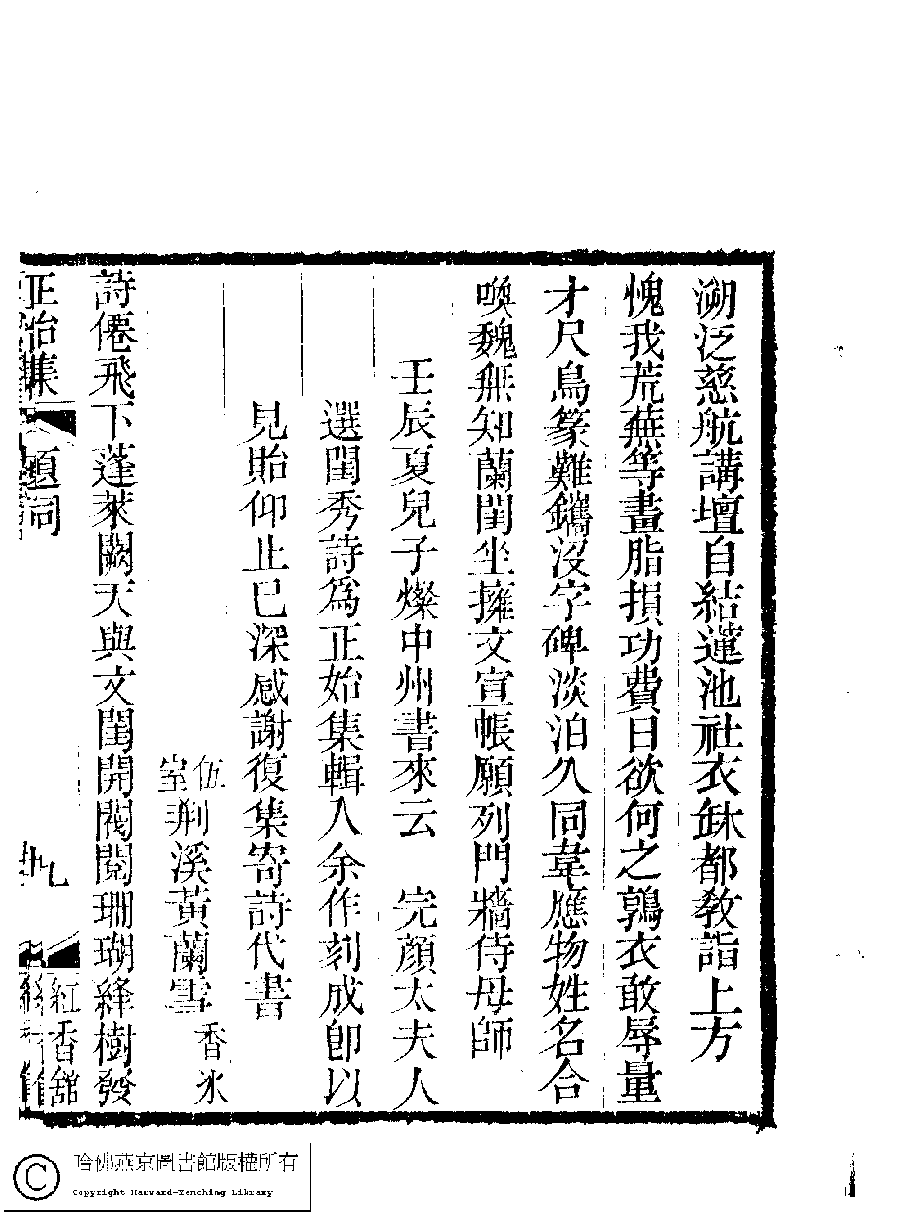 溯泛慈航講壇自結蓮池社衣缽都教詣上方
愧我荒蕪等畫脂損功費日欲何之鶉衣敢辱量
才尺鳥篆難鐫沒字碑淡泊久同韋應物姓名合
喚魏無知蘭閨坐擁文宣帳願列門牆侍母師
壬辰夏兒子燦中州書來云 完顏太夫人
選閨秀詩為正始集輯入余作刻成卽以
見貽仰止巳深感謝復集寄詩代書
伍荆溪黃蘭雪香冰
室
詩僊飛下蓬萊闕天與文閨開閥閱珊瑚絳樹發
正始集 題詞 九 紅香館
哈佛燕京圖書館版權所有
Copyright Harvard-Yenching Library